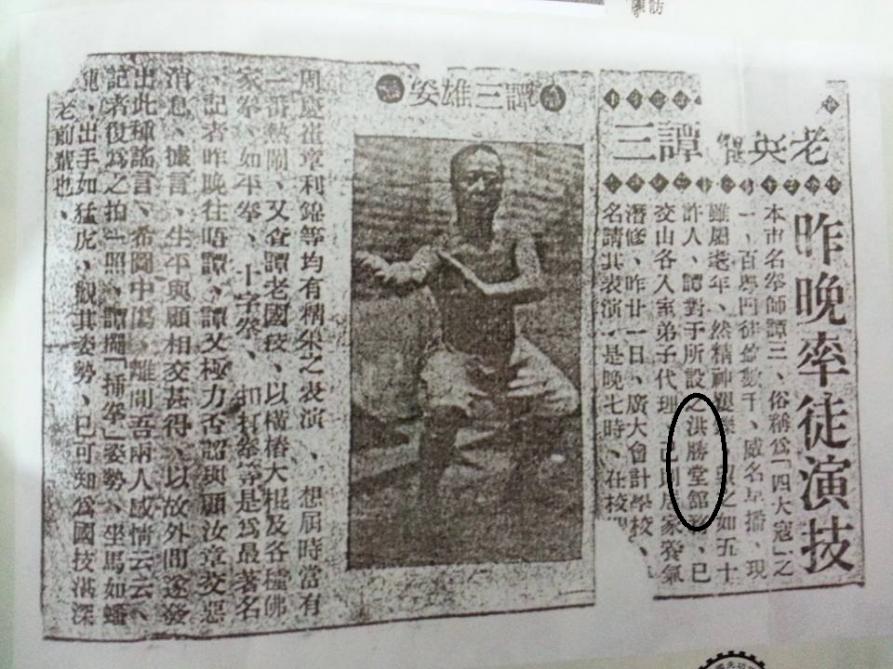 老英雄譚三
昨晚率徒演技
本市名拳師譚三、俗稱爲「四大寇」之
一、百粵門徒數千、威名早播、現
雖屬老年、然精神矍鑠、望之如五十
許人、譚對于所設之洪勝堂館務、已
交山各入室弟子代理、己則居家養氣
潛修、昨廿一日、廣大會計學校、
名請其表演、是晚七時、在校
譚三雄姿
周慶崔章利錦等均有精采之表演、想屆時當有
一番熱鬧、又查譚老國技、以橫樁大棍及各種佛
家拳、如平拳、十字拳、扣打拳等是爲最著名
、記者昨晚往晤譚、譚又極力否認與顧汝章交惡
消息、據言、生平與顧相交甚得、以故外間遂發
出此種謠言、希圖中傷、離間吾兩人感情云云、
記者復爲之拍一照、譚擺「插拳」姿勢、坐馬如蟠
龍、出手如猛虎、觀其姿勢、已可知爲國技湛深
老前輩也、
訪